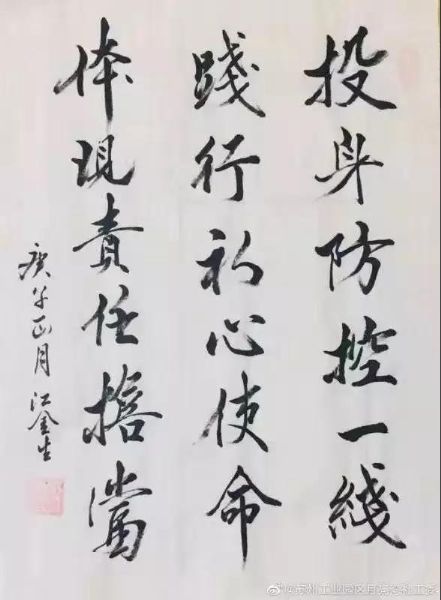 投身防控一綫
踐行初心使命
体現責任擔當
庚子正月 江金生